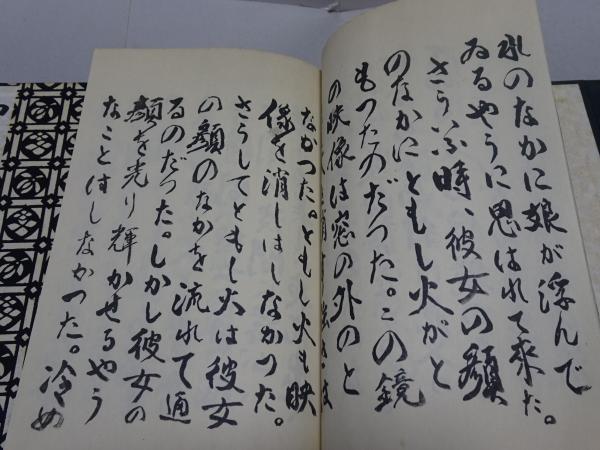 れのなかに娘が浮んで
ゐるやうに思はれて来た。
さういふ時、彼女の顔
のなかにともし火がと
もつたのだつた。この鏡
の映像は窓の外のと
強さは
なかつた。ともし火も映
像を消しはしなかつた。
さうしてともし火は彼女
の顔のなかを流れて通
るのだつた。しかし彼女の
顔を光り輝かせるやう
なことはしなかつた。冷め